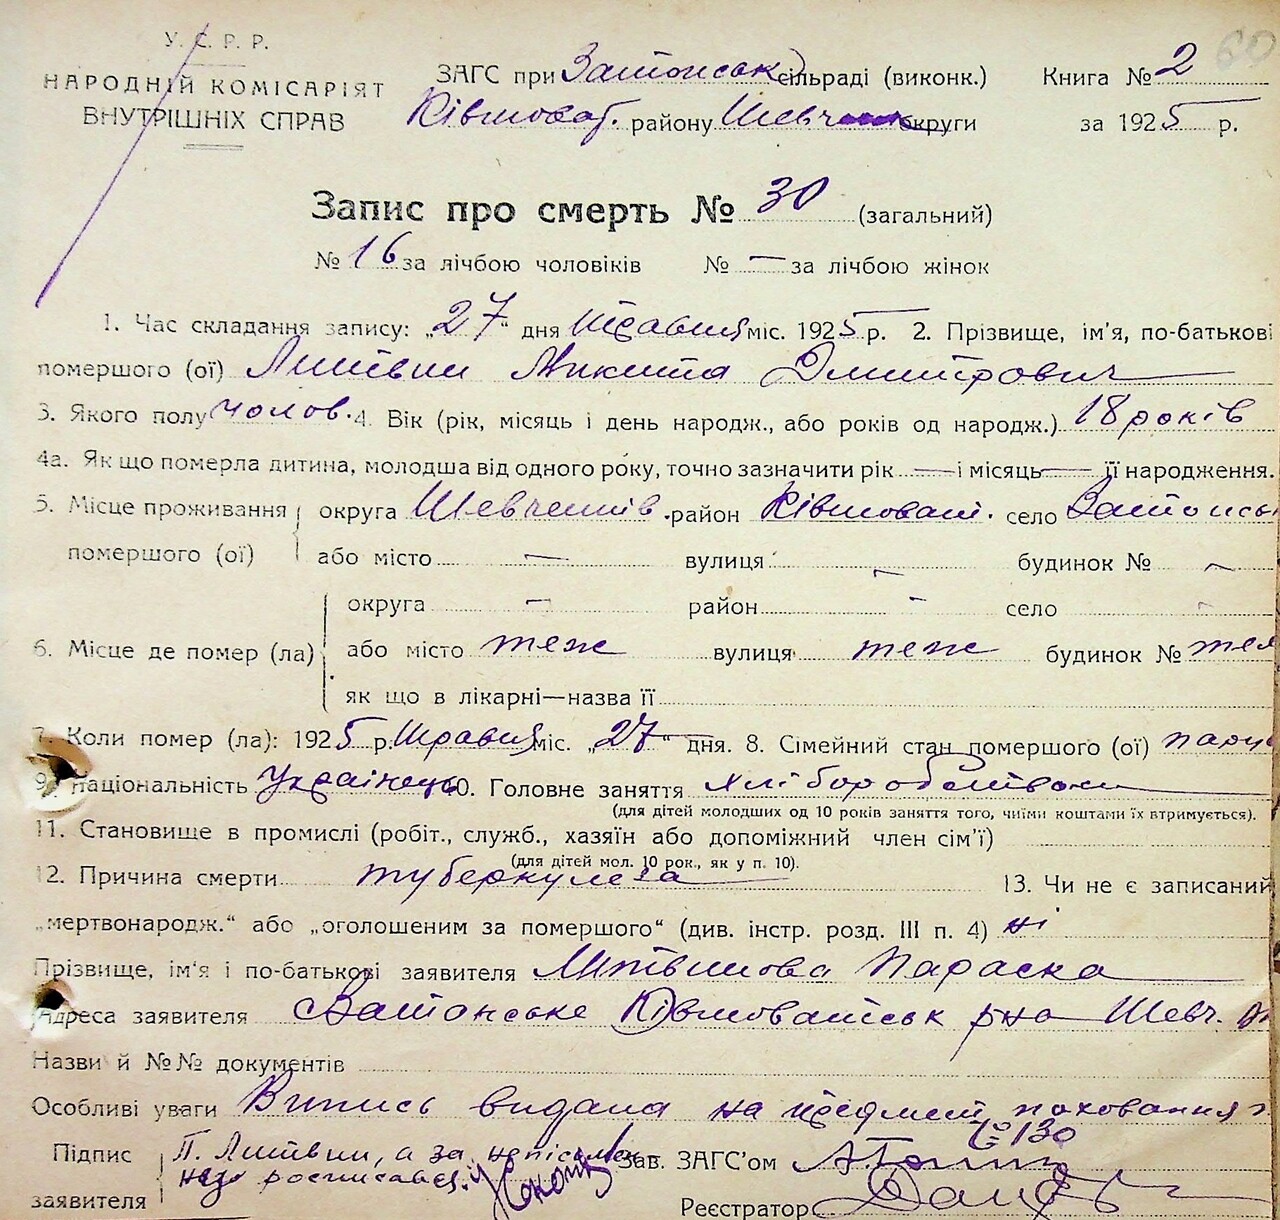 У. С. Р. Р.
НАРОДНІЙ КОМІСАРІЯТ
ВНУТРІШНІХ СПРАВ
ЗАГС при Затонськ сільраді (виконк.) Книга № 2 60
району Шевч округи за 1925 р.
Запис про смерть № 30 (загальний)
№ 16 за лічбою чоловіків № — за лічбою жінок
1. Час складання запису: „27“ дня травня міс. 1925 р. 2. Прізвище, ім'я, по-батькові
помершого (ої) Литвин Микита Дмитрович
3. Якого полу чолов. 4. Вік (рік, місяць і день народж., або років од народж.) 18 років
4а. Як що померла дитина, молодша від одного року, точно зазначити рік — і місяць — її народження.
5. Місце проживання округа Шевченків. район село Затонсь
помершого (ої) або місто — вулиця — будинок № —
округа — район — село -
6. Місце де помер (ла) або місто теж вулиця теж будинок № теж
як що в лікарні—назва її
7. Коли помер (ла): 1925 р. травня міс. „27“ дня. 8. Сімейний стан помершого (ої)
9. Національність Українець 10. Головне заняття хліборобство
(для дітей молодших од 10 років заняття того, чиїми коштами їх втримується).
11. Становище в промислі (робіт., служб., хазяїн або допоміжний член сім'ї)
(для дітей мол. 10 рок., як у п. 10).
12. Причина смерти туберкульоза 13. Чи не є записаний
„мертвонародж.“ або „оголошеним за помершого“ (див. інстр. розд. III п. 4) ні
Прізвище, ім'я і по-батькові заявителя Литвинова Параска
Адреса заявителя Затонське р на Шевч.
Назви й №№ документів
Особливі уваги Випись видана на предмет поховання
№ 130
Підпис П. Литвин, а за неписьмен
заявителя ну росписався Зав. ЗАГС'ом
Реєстратор